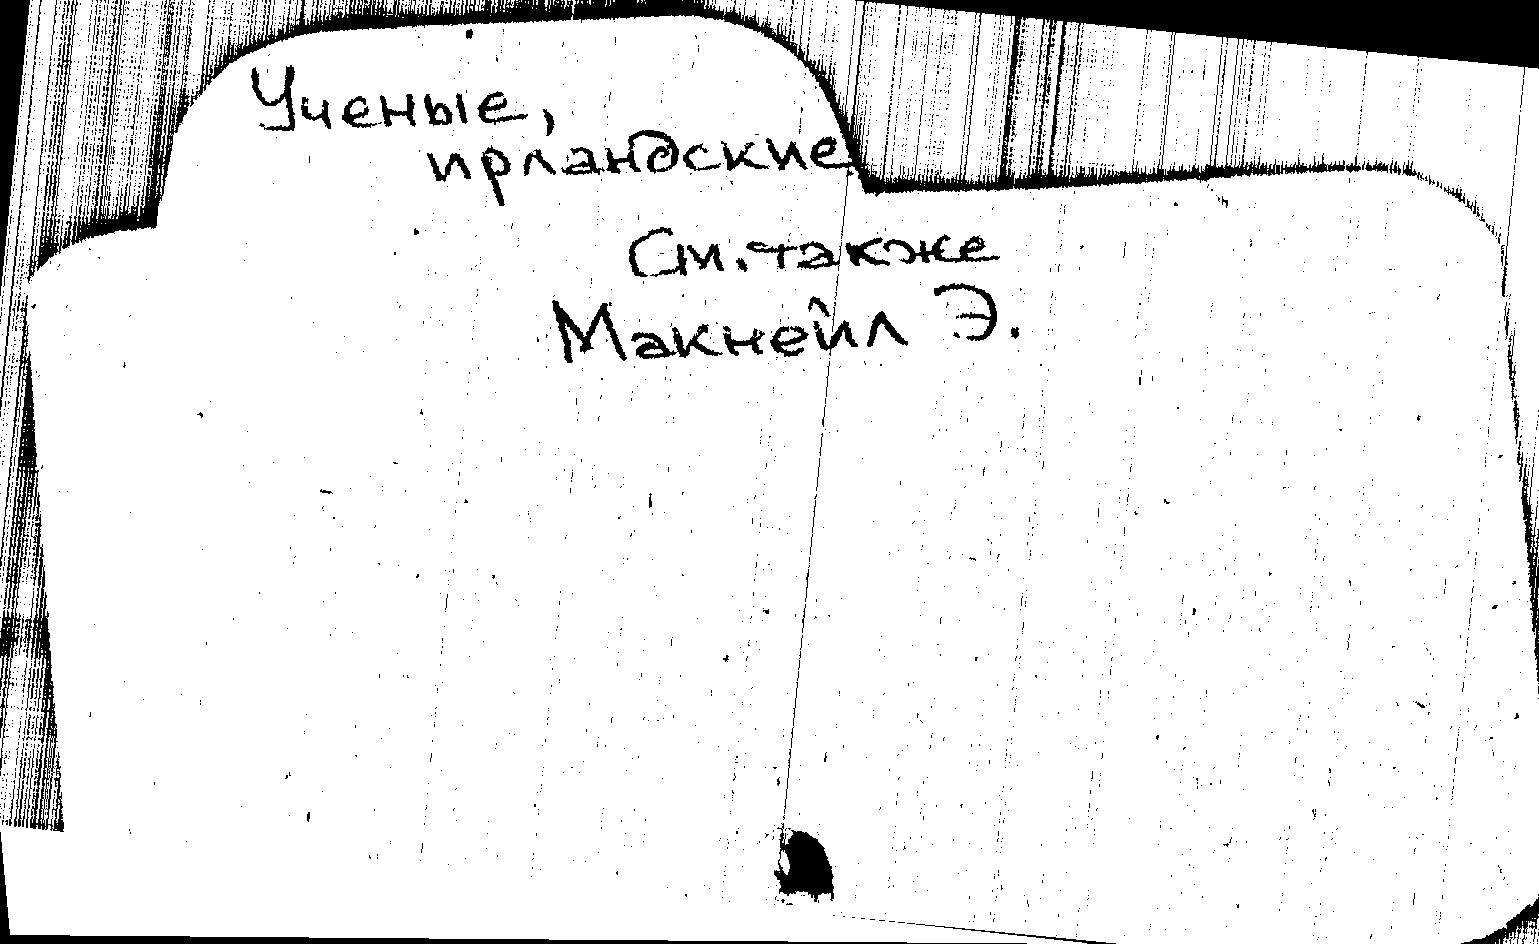 Ученые,
ирландские
См. также
Макнейл Э.